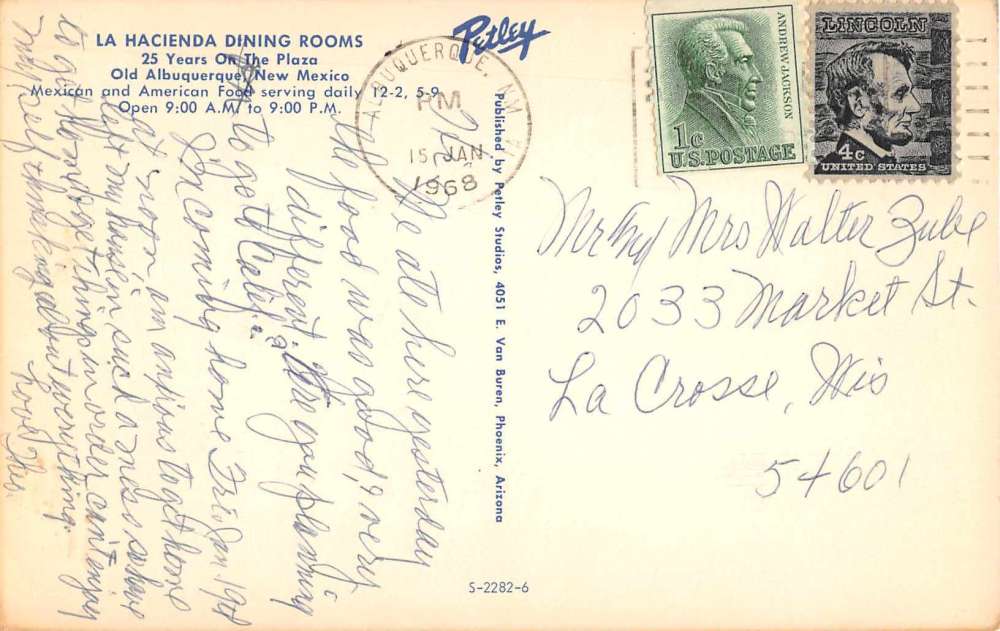 LA HACIENDA DINING ROOMS
25 Years On The Plaza
Old Albuquerque, New Mexico
Mexican and American Food serving daily 12-2, 5-9
Open 9:00 A.M. to 9:00 P.M.
Petley
Published by Petley Studios, 4051 E. Van Buren, Phoenix, Arizona
S-2282-6
ALBUQUERQUE, N.M.
PM
15 JAN
1968
ANDREW JACKSON
1c
U.S. POSTAGE
LINCOLN
4c
UNITED STATES
Mr and Mrs Walter Zube
2033 Market St.
La Crosse, Wis
54601
We ate here yesterday
the food was good & very
different. Are you planning
to go to Calif?
I'm coming home Fri Jan 19th
at noon am anxious to get home
left my house in such a mess so have
to get things in order can't enjoy
myself thinking about everything.
Love